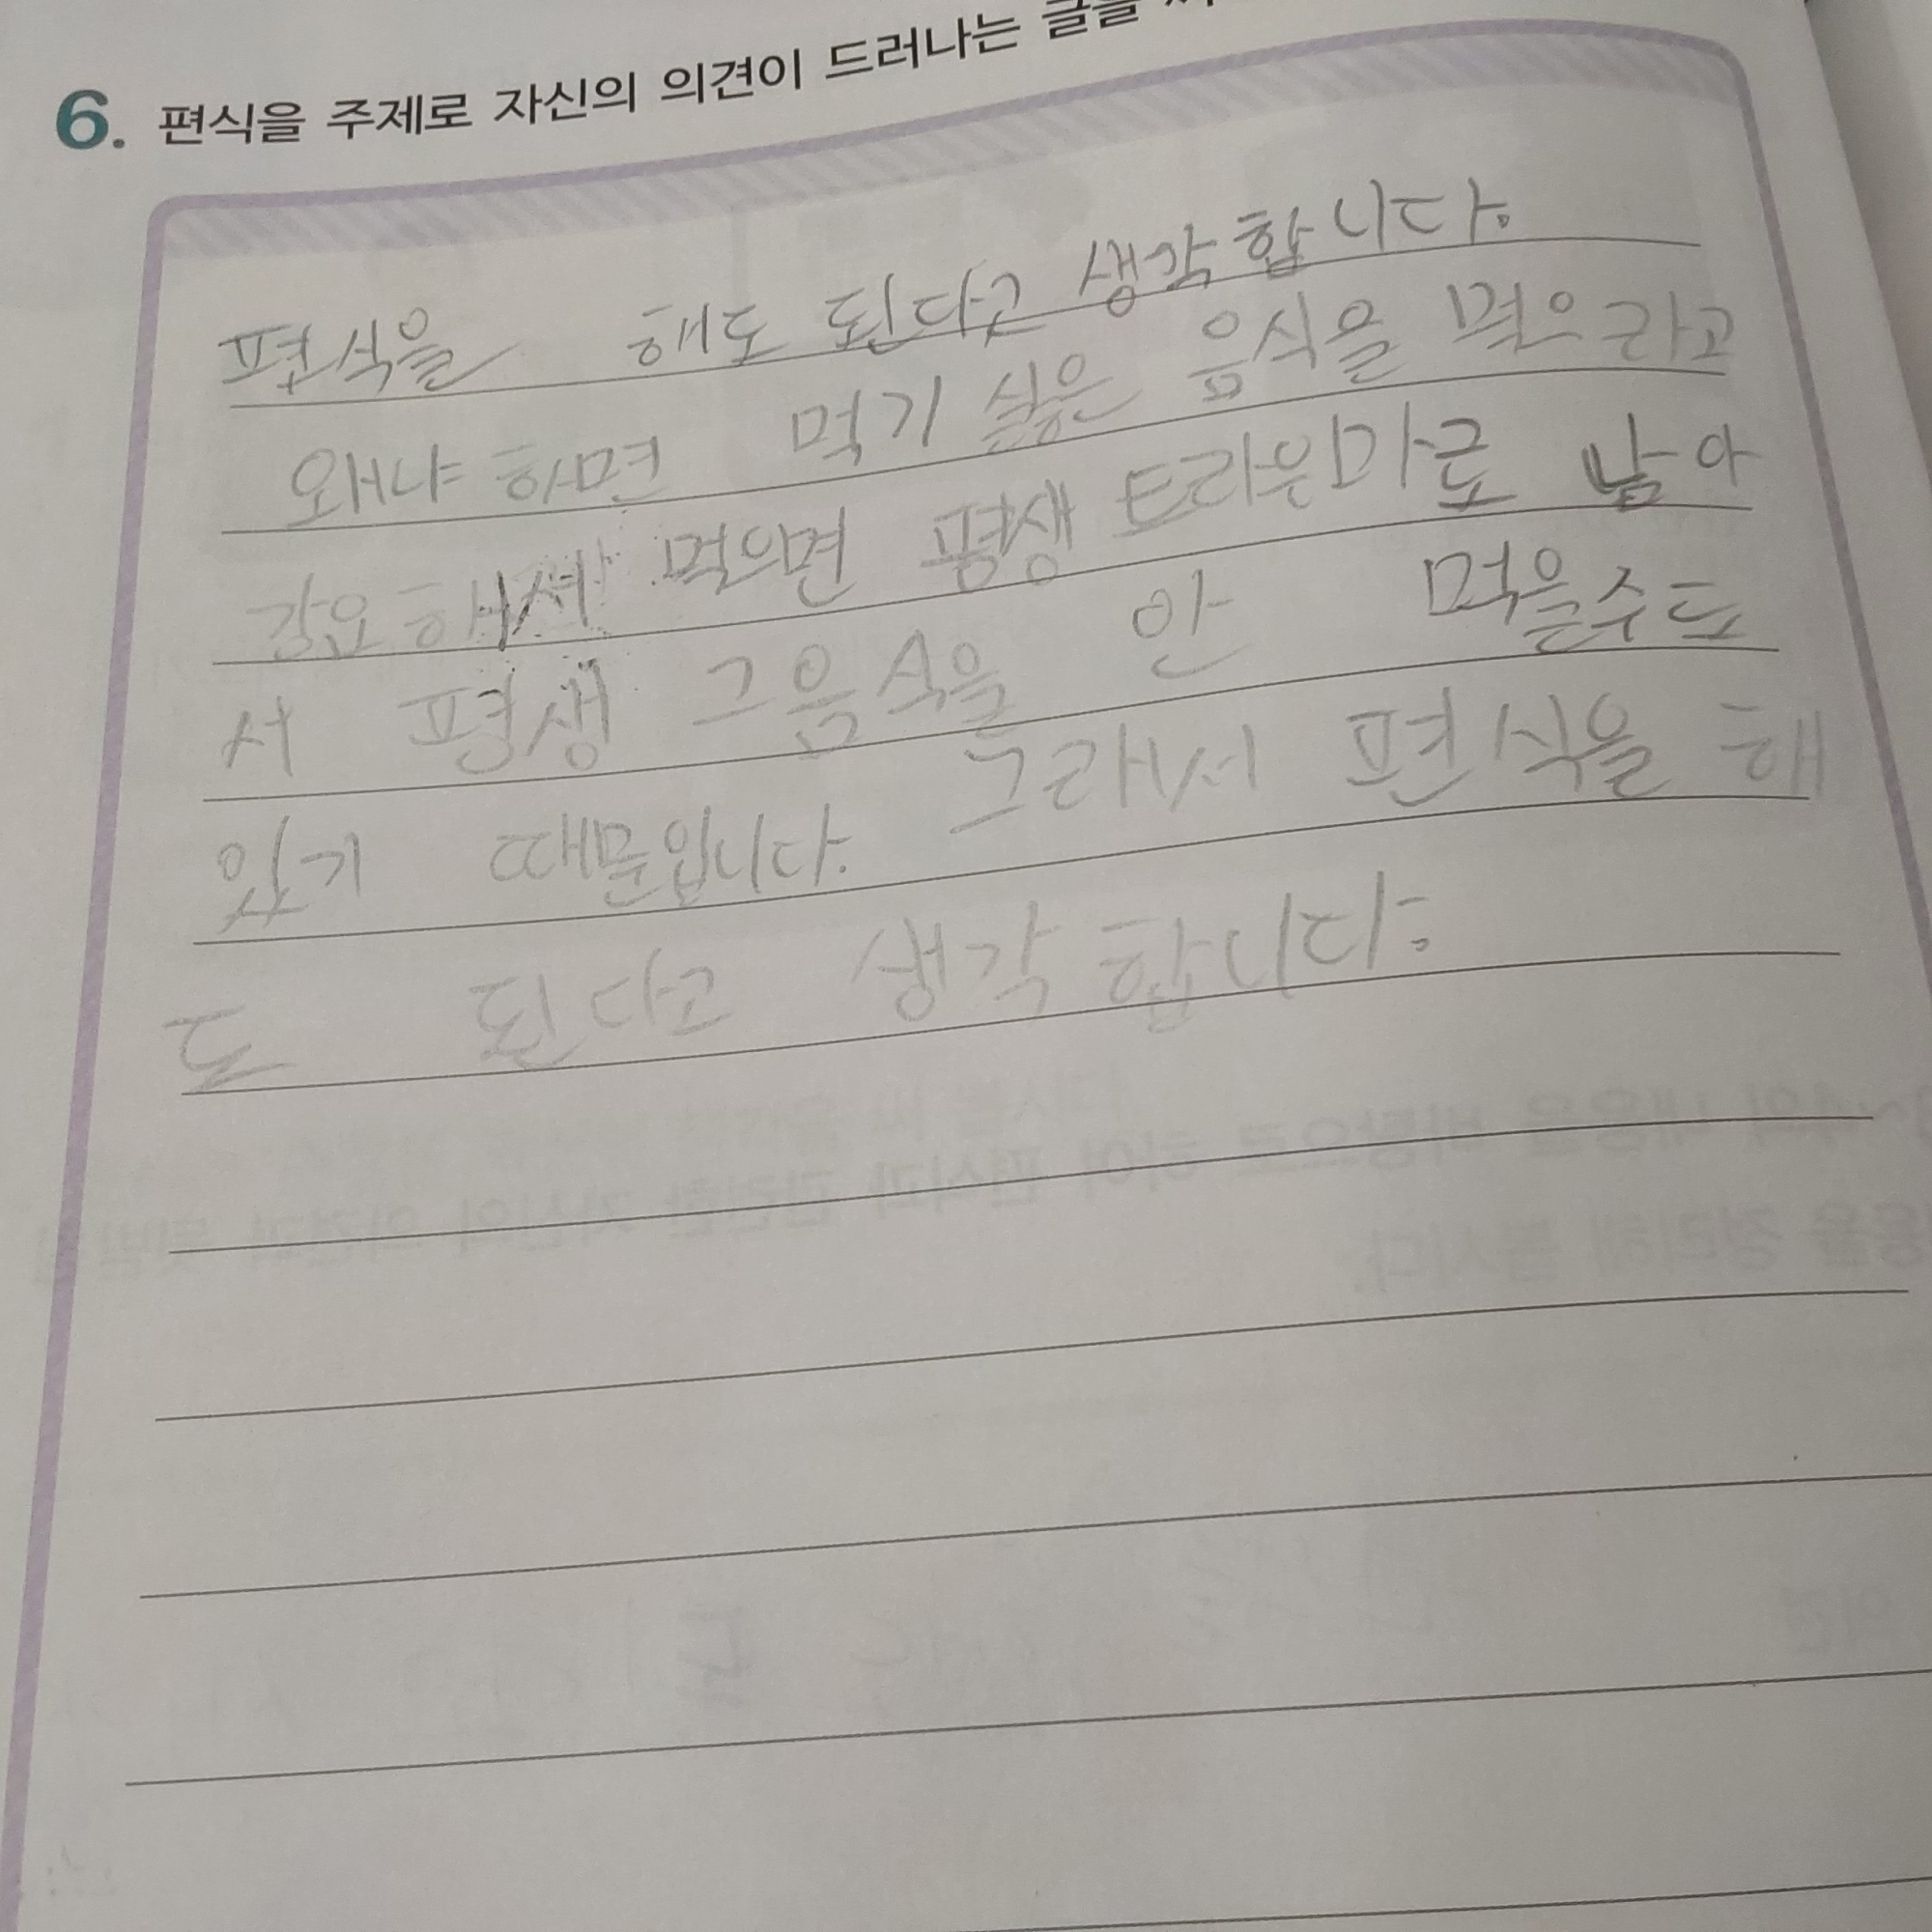 6. 편식을 주제로 자신의 의견이 드러나는 글을
편식을 해도 된다고 생각합니다.
왜냐하면 먹기 싫은 음식을 먹으라고
강요해서 먹으면 평생 트라우마로 남아
서 평생 그음식을 안 먹을수도
있기 때문입니다. 그래서 편식을 해
도 된다고 생각합니다.